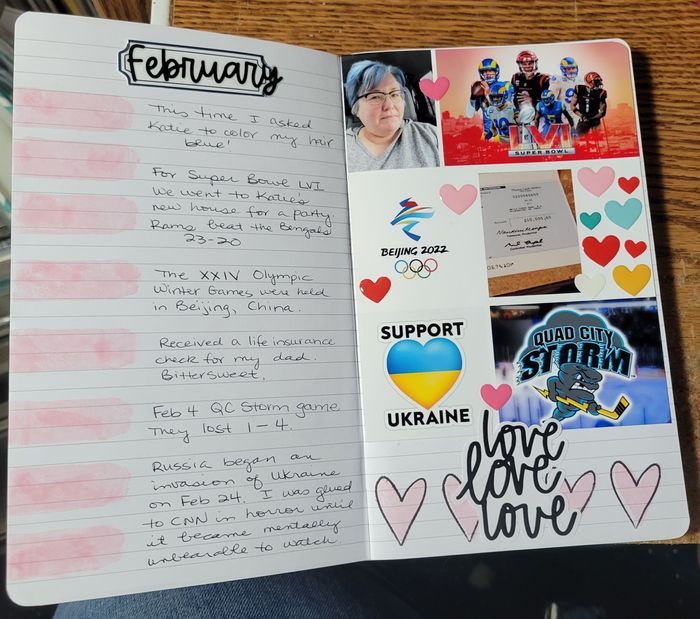 February
This time I asked
Katie to color my hair
blue!
For Super Bowl LVI
we went to Katie's
new house for a party.
Rams beat the Bengals
23-20
The XXIV Olympic
Winter Games were held
in Beijing, China.
Received a life insurance
check for my dad.
Bittersweet.
Feb 4 QC Storm game
They lost 1-4.
Russia began an
invasion of Ukraine
on Feb 24. I was glued
to CNN in horror until
it became mentally
unbearable to watch.
LVI
SUPER BOWL
BEIJING 2022
SUPPORT
UKRAINE
QUAD CITY
STORM
love
love
love